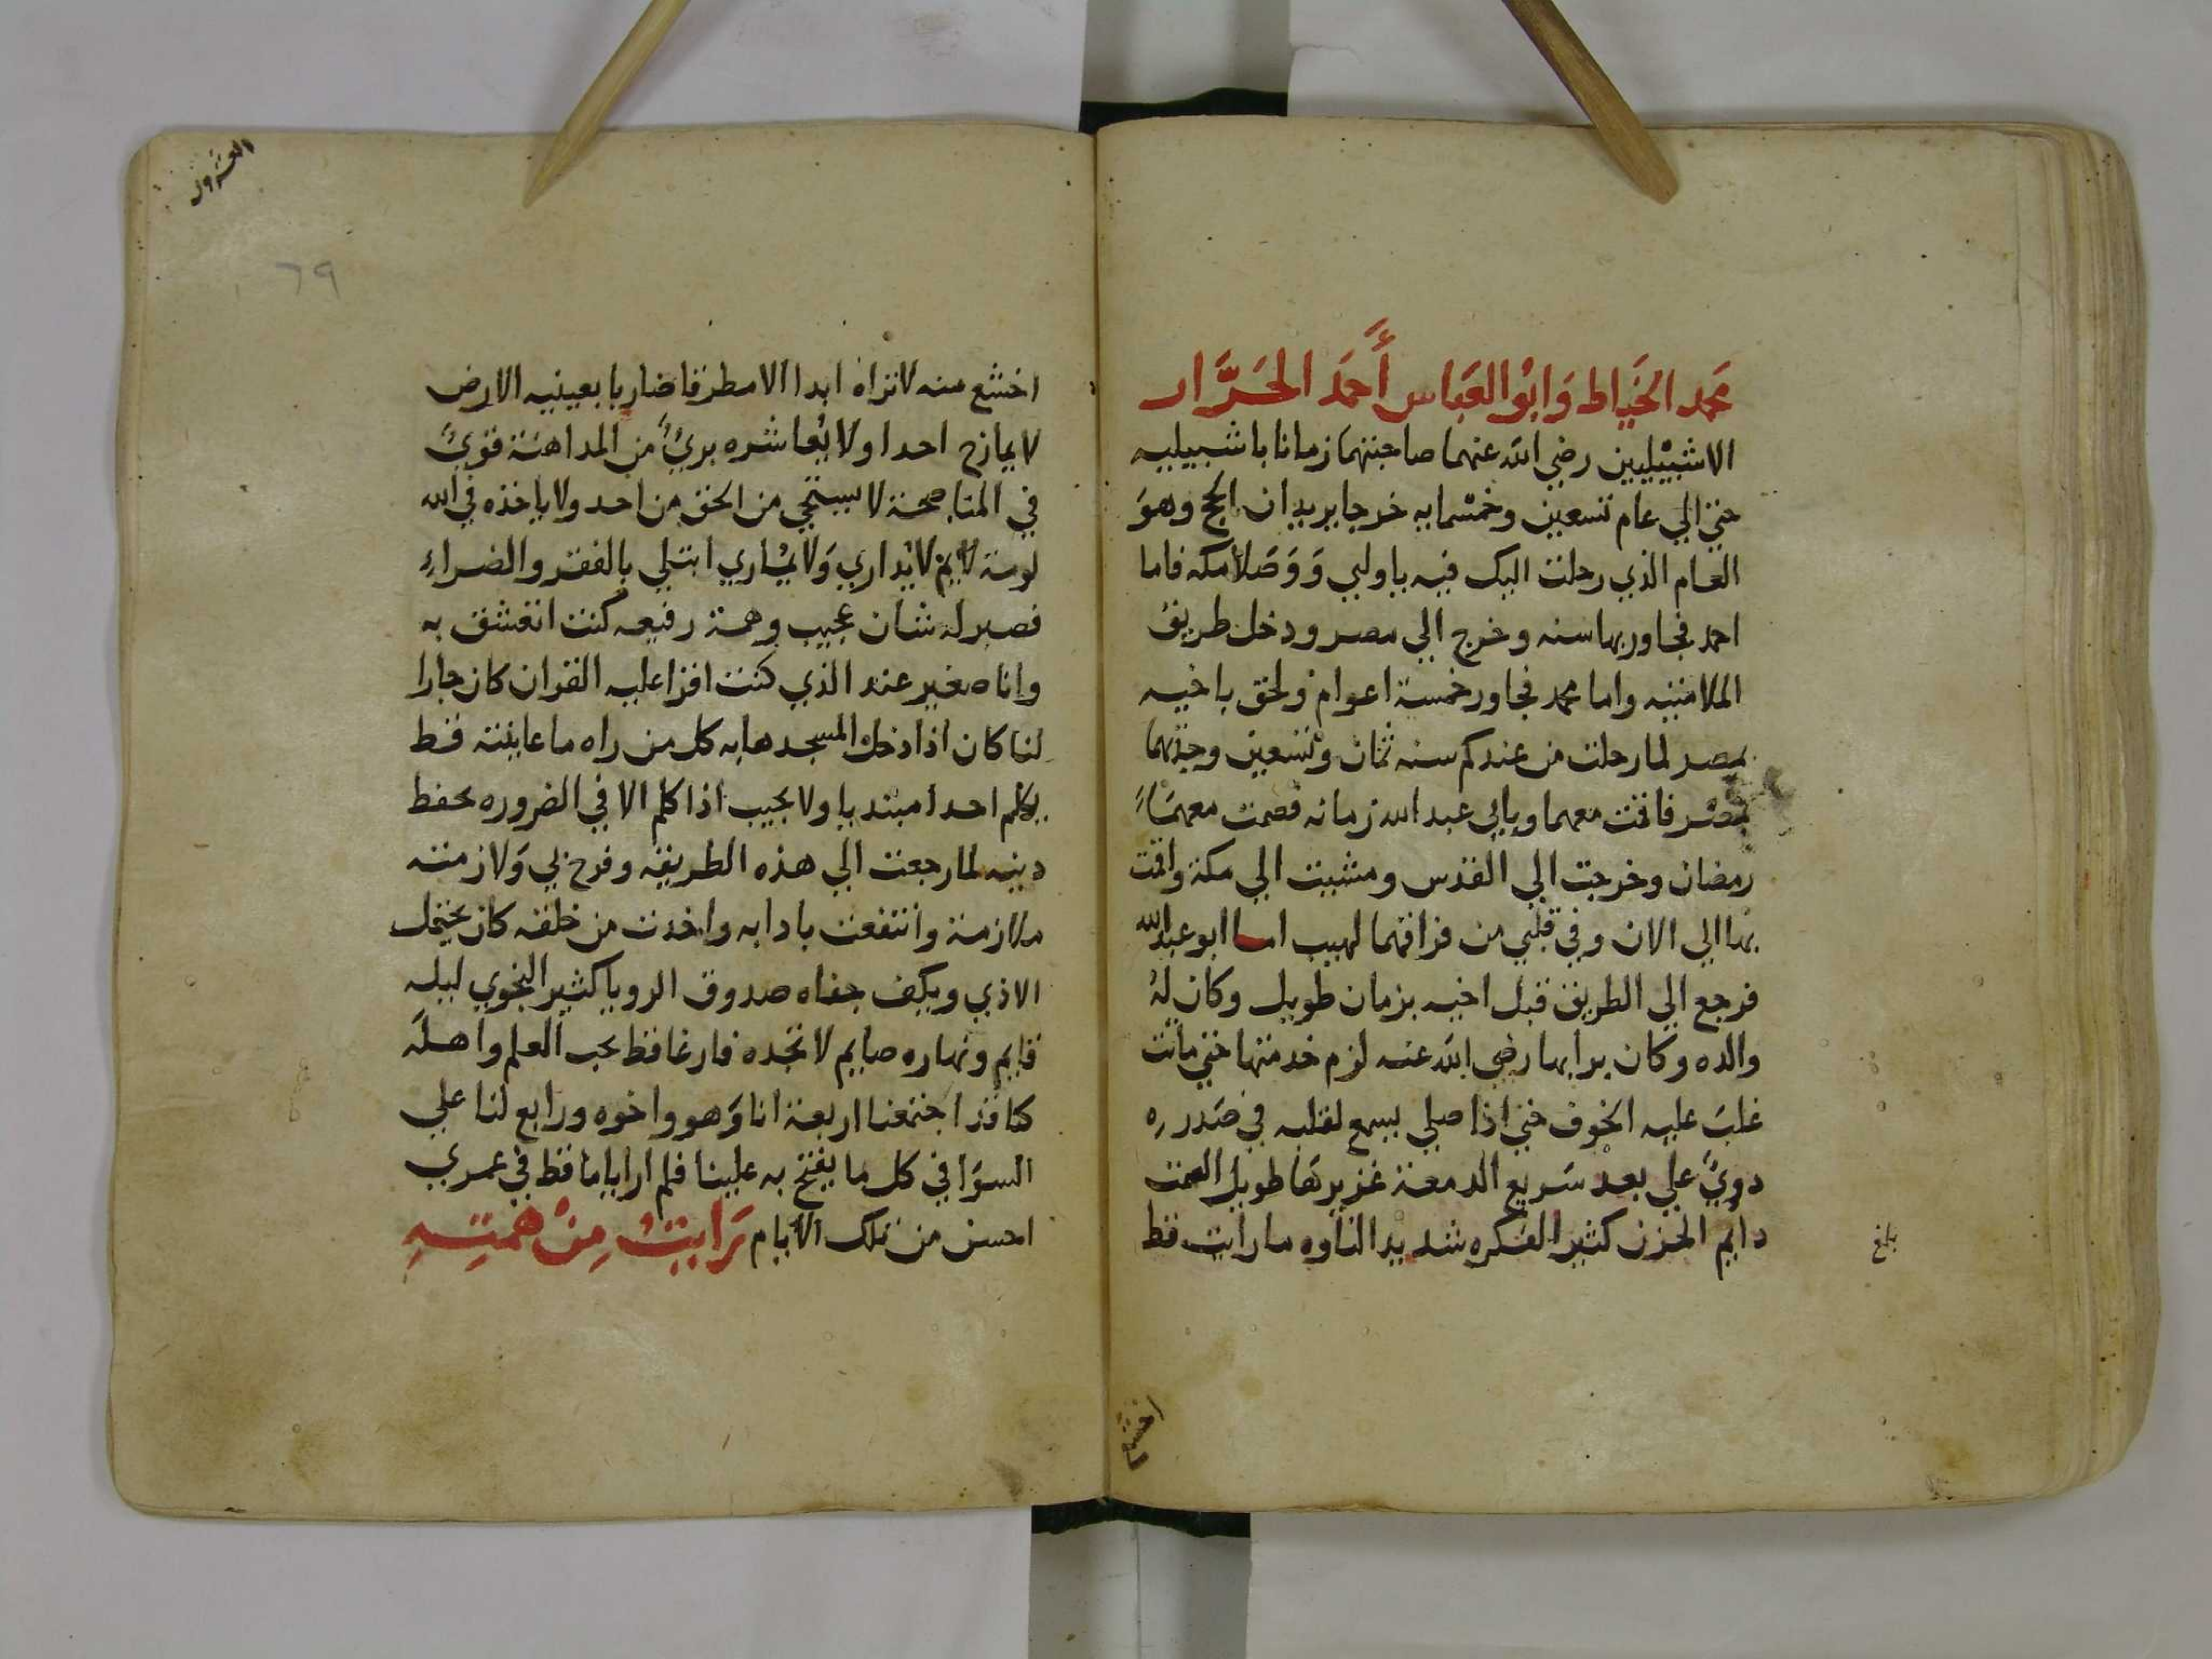 محمد الخَيَاط وَابُو العَبَاس أَحمَد الحَرَّار
الاشبيْليين رضي الله عنهما صاحبتهما زمانا باشبيليه
حتي الي عام تسعين وخمسْمايه خرجا يريدان الحج وهوَ
العام الذي رحلت اليك فيه ياوليي وَوَصَلا مكه فاما
احمد فجاور بها سنه وخرج الي مصر ودخل طريق
الملامتيه واما محمد فجاور خمسة اعوام ولحق باخيه
بمصر لما رحلت من عندكم سنه ثمان وتسعين وجدتهما
بمصْر فاقمت معهما وبابي عبد الله زمانه فصمت معهمَا
رمضان وخرجت الي القدس ومشيت الي مكة واقمت
بها الي الان وفي قلبي من فراقهما لهيب اما ابو عبد الله
فرجع الي الطريق قبل اخيه بزمان طويل وكان لهُ
والده وكان برا بها رضي الله عنه لزم خدمتها حتي ماتت
غلبَ عليه الخوف حتي اذا صلي يسمع لقلبه في صَدره
دويٌ علي بعد سَريع الدمعة غزيرهَا طويل الصمت
دايم الحزن كثير الفكره شديد التاوه ما رايت قط
بلغ
اخشع منه
اخشع منه لا تراه ابدا الا مطرقا ضاربا بعينيه الارض
لا يمازح احدا ولا يُعاشره بريٌ من المداهنة قويٌ
في المناصحة لا يستحي من الحق من احد ولا ياخذه في الله
لومة لايم لا يُداري وَلا يُماري ابتلي بالفقر والضراءِ
فصبر له شان عجيب وهمة رفيعه كنت اتعشق به
وانا صغير عند الذي كنت اقرا عليه القران كان جارا
لنا كان اذا دخل المسجد هابه كل من راه ما عاينته قط
يكلم احدا مبتديا ولا يجيب اذا كلم الا في الضروره يحفظ
دينه لما رجعت الي هذه الطريقه وفرح بي وَلازمته
ملازمة وانتفعت بادابه واخذت من خلقه كان يحتمل
الاذي ويكف جفاه صدوق الرويا كثير النجوي ليله
قايم ونهاره صايم لا تجده فارغا قط يحب العلم واهله
كنا قد اجتمعنا اربعة انا وَهو واخوه ورابع لنا علي
السوَا في كل ما يفتح به علينا فلم ار اياما قط في عمري
احسن من تلك الايام رَايتْ مِنْ همتِهِ
٦٩